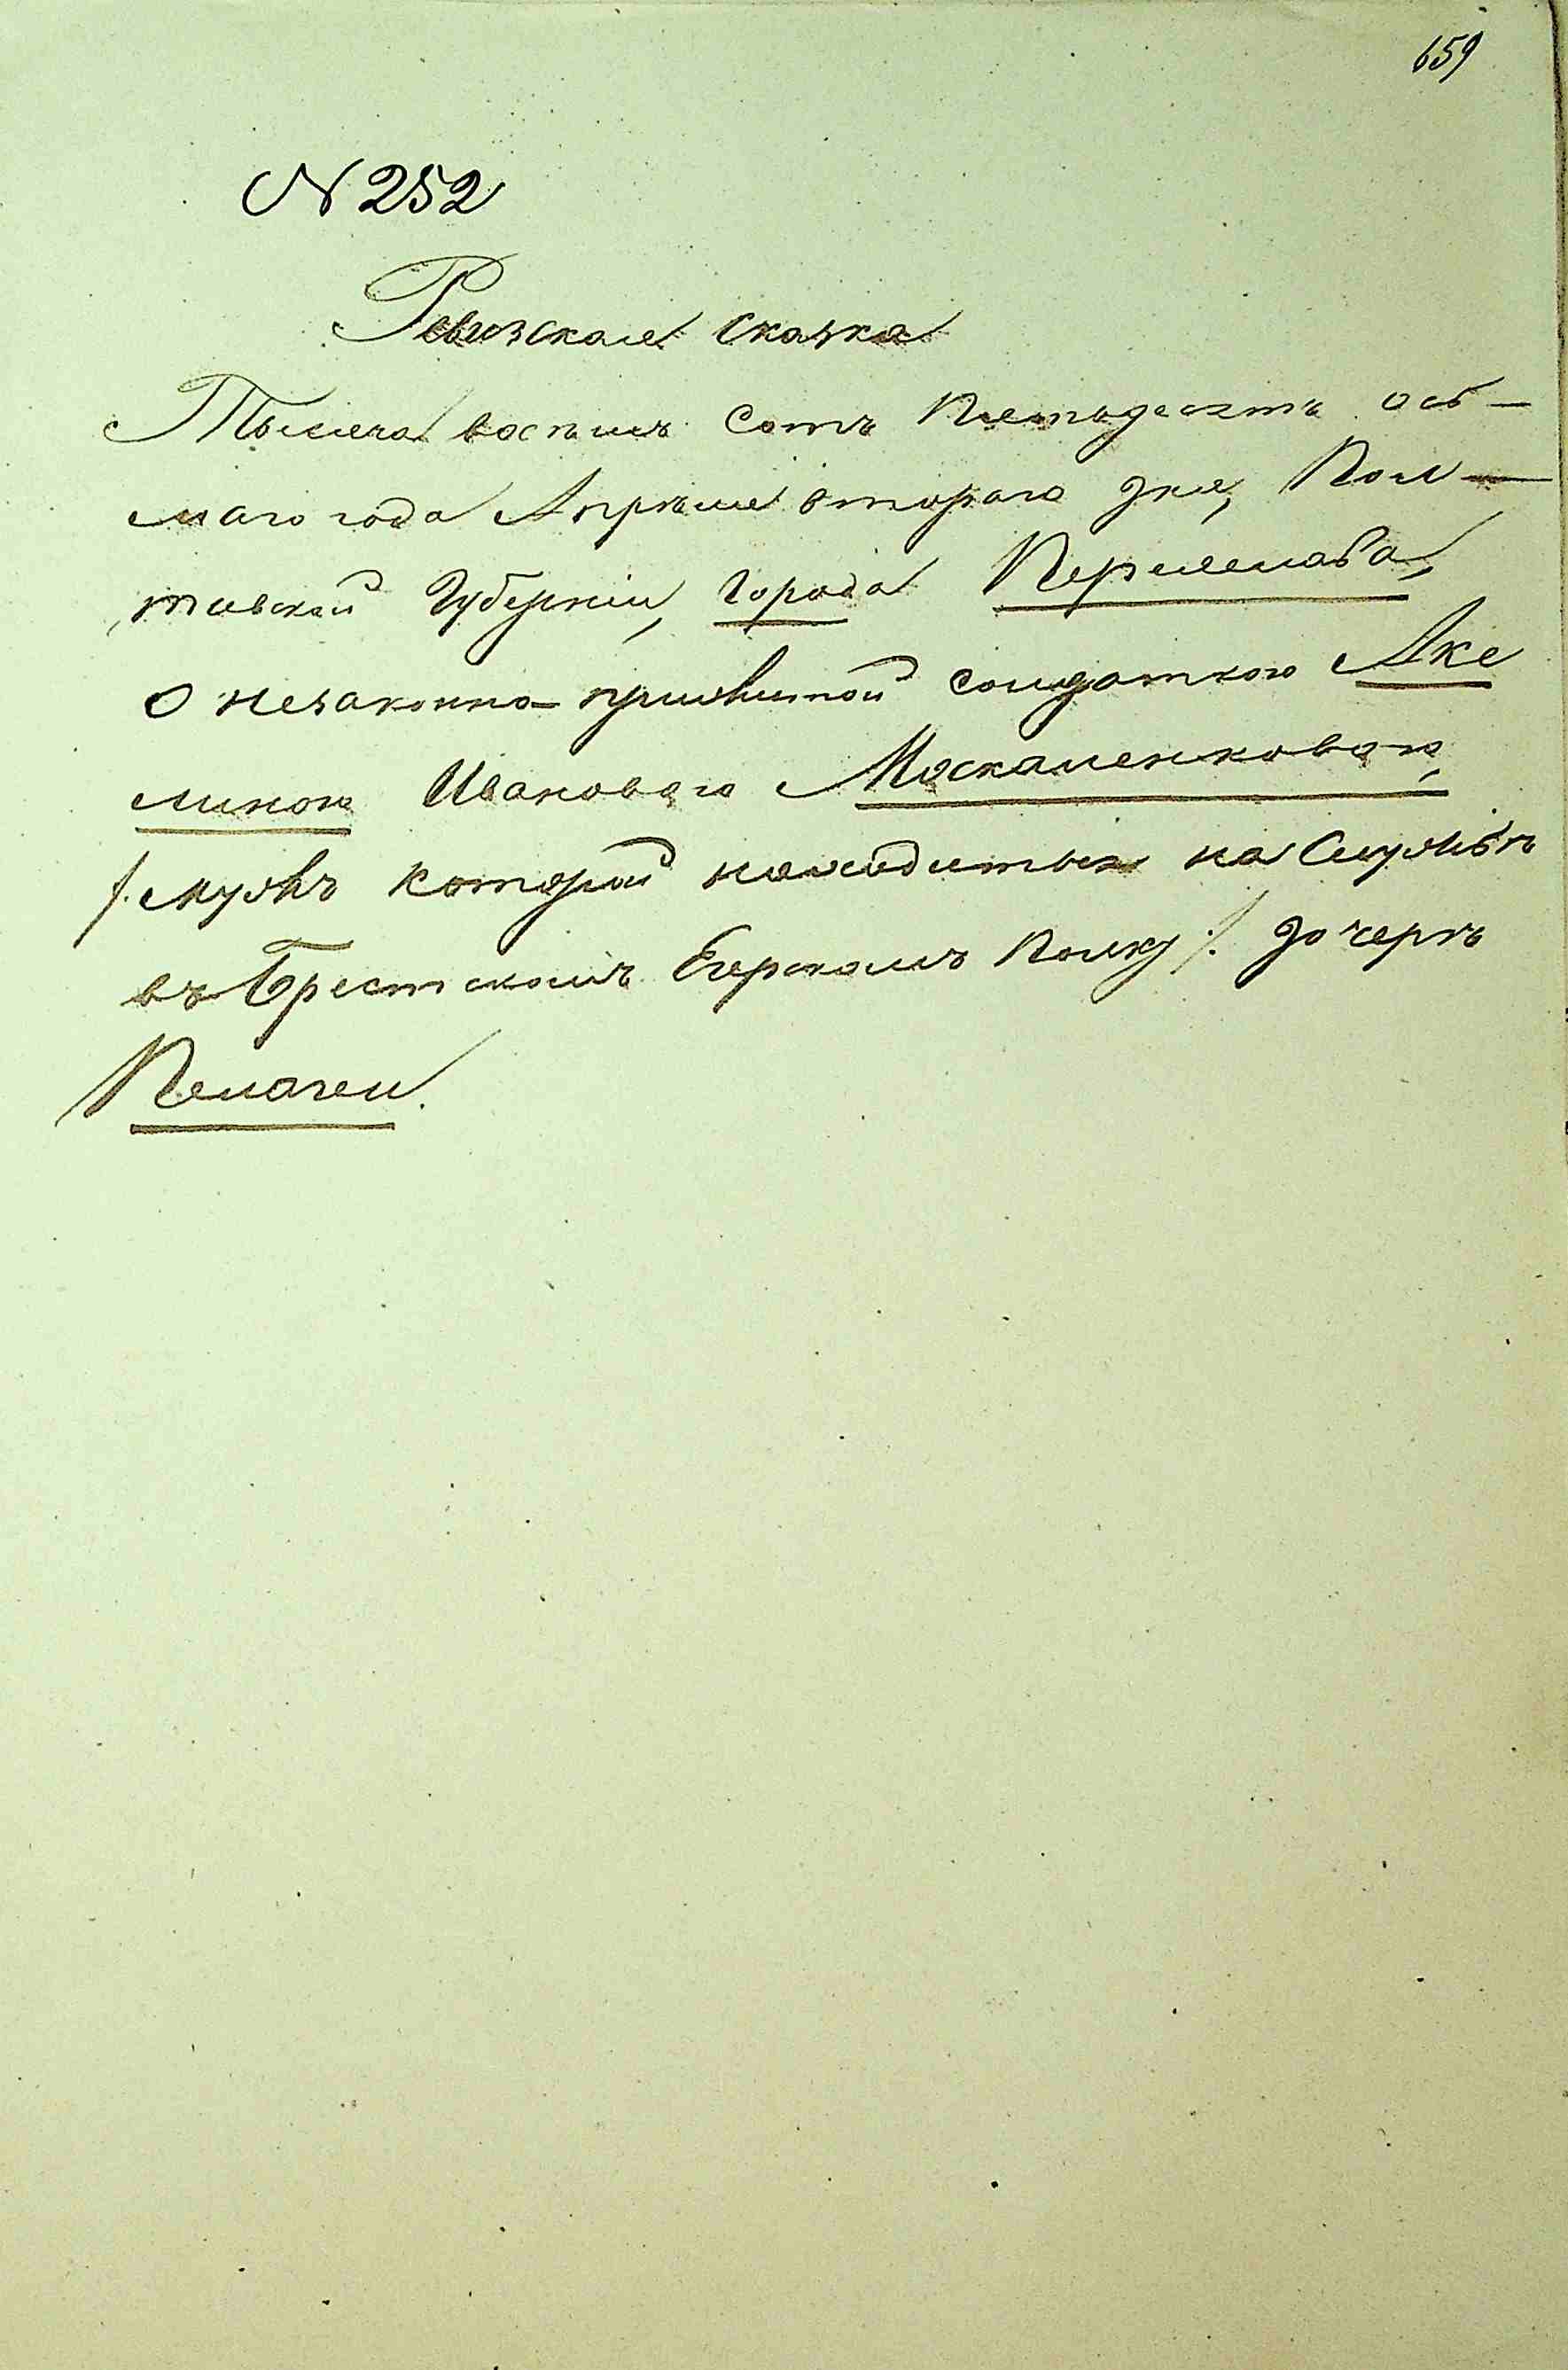 659
N 252
Ревизская сказка
Тысяча восемь сотъ Пятьдесятъ ось-
маго года Апрѣля второго дня, Пол-
тавской Губерніи, города Переяслава,
о незаконно-прижитой солдаткою Аке
линою Ивановою Москаленковою,
/. мужъ которой находится на Службѣ
въ Брестскомъ Егерскомъ Полку /. дочерѣ
Пелагеи.